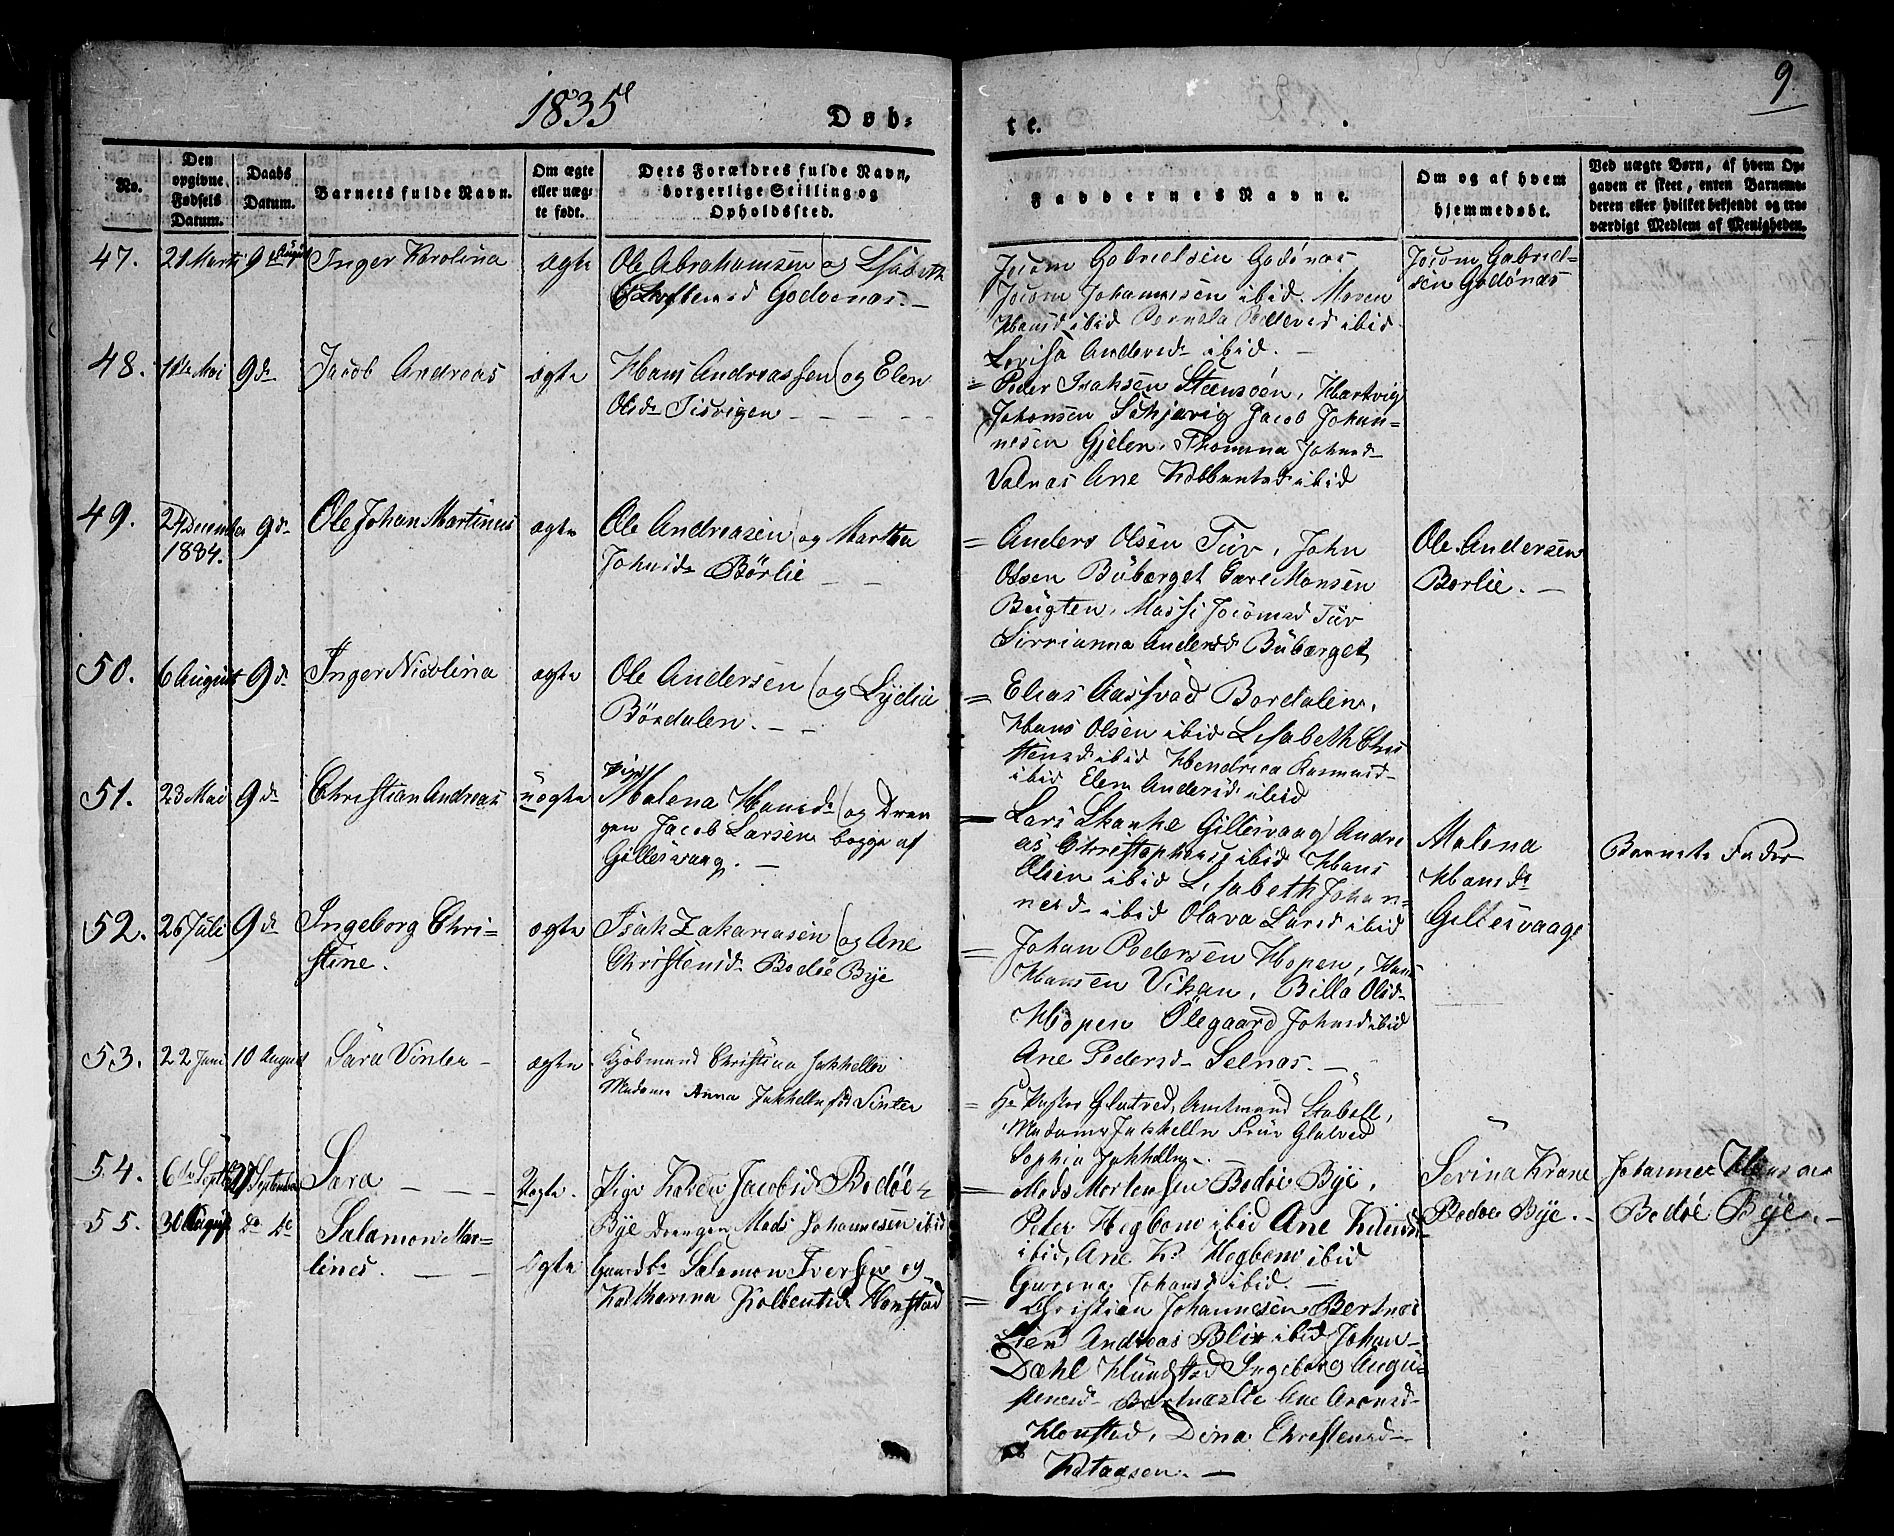 1835
Døb-
te.
9
No.
Den opgivne Fødsels Datum.
Daabs Datum.
Barnets fulde Navn.
Om ægte eller uægte født.
Dets Forældres fulde Navn, borgerlige Stilling og Opholdssted.
Faddernes Navne.
Om og af hvem hjemmedøbt.
Ved uægte Børn, af hvem Opgaven er skeet, enten Barnemoderen eller hvilket bekjendt og troværdigt Medlem af Menigheden.
47. 21 Marti 9 August Inger Karolina ægte
Ole Abrahamsen og Lisabeth
Godønas.
Jocom Gabrielsen Godønas
Jocom Johannesen ibid. Maren
Hansd ibid Pernela Pedersd ibid
Lovisa Andersd ibid.
Jocom Gabriel-
sen Godønas
48. 1ste Mai 9 d Jacob Andreas ægte
Hans Andreassen og Elen
Olsd Tisvigen
= Peder Isaksen Stensøen, Hartvig
Johansen Skjævig Jacob Johan-
nesen Gjelen, Thomina Johnsd
Valnas Ane ibid
49. 24 December 9 d Ole Johan Martinus ægte
1834.
Ole Andreasen og Martha
Johnsd Børlie
= Anders Olsen Tüv, John
Olsen Bübærget Mønsen
Bügten, Massi Jocomsd Tüv
Sirrianna Andersd Bübærget
Ole Andersen
Børlie.
50. 6 August 9 d Inger Nicolina ægte
Ole Andersen og Lydia
Bördalen.
= Elias Bordalen,
Hans Olsen ibid Lisabeth Chri-
stensd ibid Hendrica Rasmusd
ibid Elen Andersd ibid
51. 23 Mai 9 d Christian Andreas uægte
Pige
Malena Hansd og Dren
gen Jacob Larsen begge af
Gillesvaag.
= Lars Skanke Gillesvaag Andre
as Christophersen ibid Hans
Olsen ibid Lisabeth Johan-
nesd ibid Olava Larsd ibid
Malena
Hansd
Gillesvaag
Barnets Fader
52. 26 Juli 9 d Ingeborg Chri- ægte
stine.
Isak Zakariasen og Ane
Christensd Bodøe Bye
= Johan Pedersen Hopen, Hans
Hansen Vikan, Billa Olsd
Hopen Olegaard Johnsd ibid
Ane Pedersd Selnas.
53. 22 Juni 10 August Sara Vinter ægte
Kjøbmand Christian Jakhelln
Madame Anna Jakhelln fød Vinter
= Hr Pastor Glatved, Amtmand Stabell,
Madame Jakhelln Frue Glatved
Sophia Jakhelln.
54. 6 de Septbr September Sara Uægte.
Pige Karen Jacobsd Bodøe
Bye Drengen Mads Johannesen ibid
= Mads Mortensen Bodøe Bye,
Peder Hegbom ibid Ane
ibid, Ane K. Hegbom ibid
Gurina Johansd ibid.
Serina Krane
Bodøe Bye.
Johannes Hansen
Bodøe Bye.
55. 30 August do do Salamon Mar- ægte
tines.
Gaardb Salamon Iversen og
Katharina Kolbentsd Honstad
= Christian Johannesen Bertnæs
lien Andreas Blix ibid Johan
Dahl Hundstad Ingeborg Augu-
stinesd Bertnæslie Ane Aronsd
Honstad, Dina Christensd